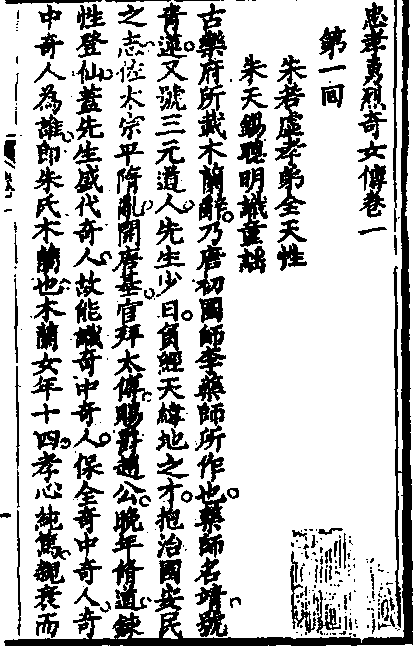 忠孝勇烈奇女傳卷一
第一回
朱若虛孝弟全天性
朱天錫聰明識童謠
古樂府所載木蘭辭乃唐初國師李藥師所作也藥師名靖號
青蓮又號三元道人先生少日負經天緯地之才抱治國安民
之志佐太宗平隋亂開唐基官拜太傅賜爵趙公晚年修道鍊
性登仙蓋先生盛代奇人故能識奇中奇人保全奇中奇人奇
中奇人為誰即朱氏木蘭也木蘭女年十四孝心純篤親衰而